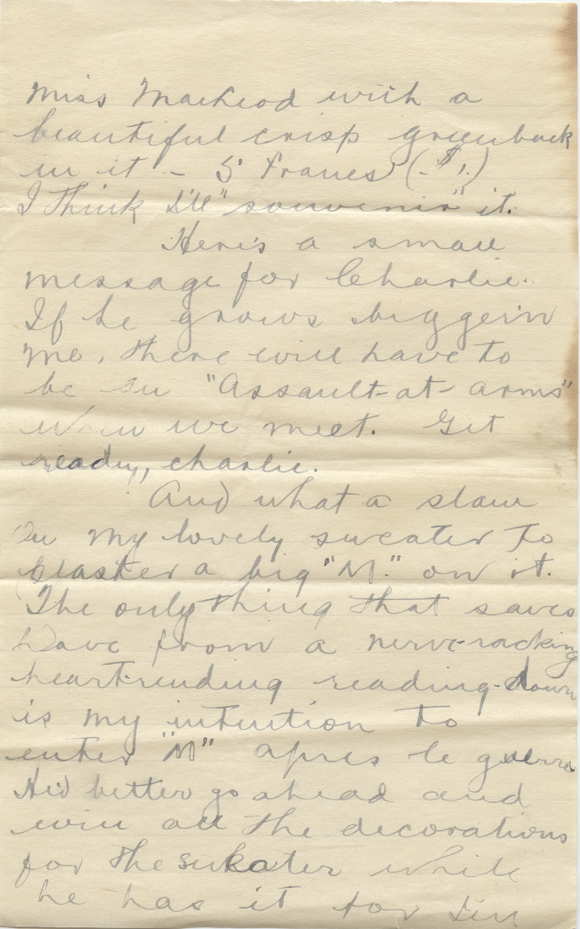 Miss MacLeod with a
beautiful crisp greenback
in it - 5 Francs (-$1.)
I think I'll "souvenir" it.
Here's a small
message for Charlie.
If he grows bigger'n
me, there will have to
be an "Assault-at-arms"
when we meet. Get
ready, Charlie.
And what a slam
on my lovely sweater to
plaster a big "M." on it.
The only thing that saves
Dave from a nerve-racking
heart-rending reading-down
is my intention to
enter "M" apres le guerre
He'd better go ahead and
win all the decorations
for the sweater while
he has it for I'm